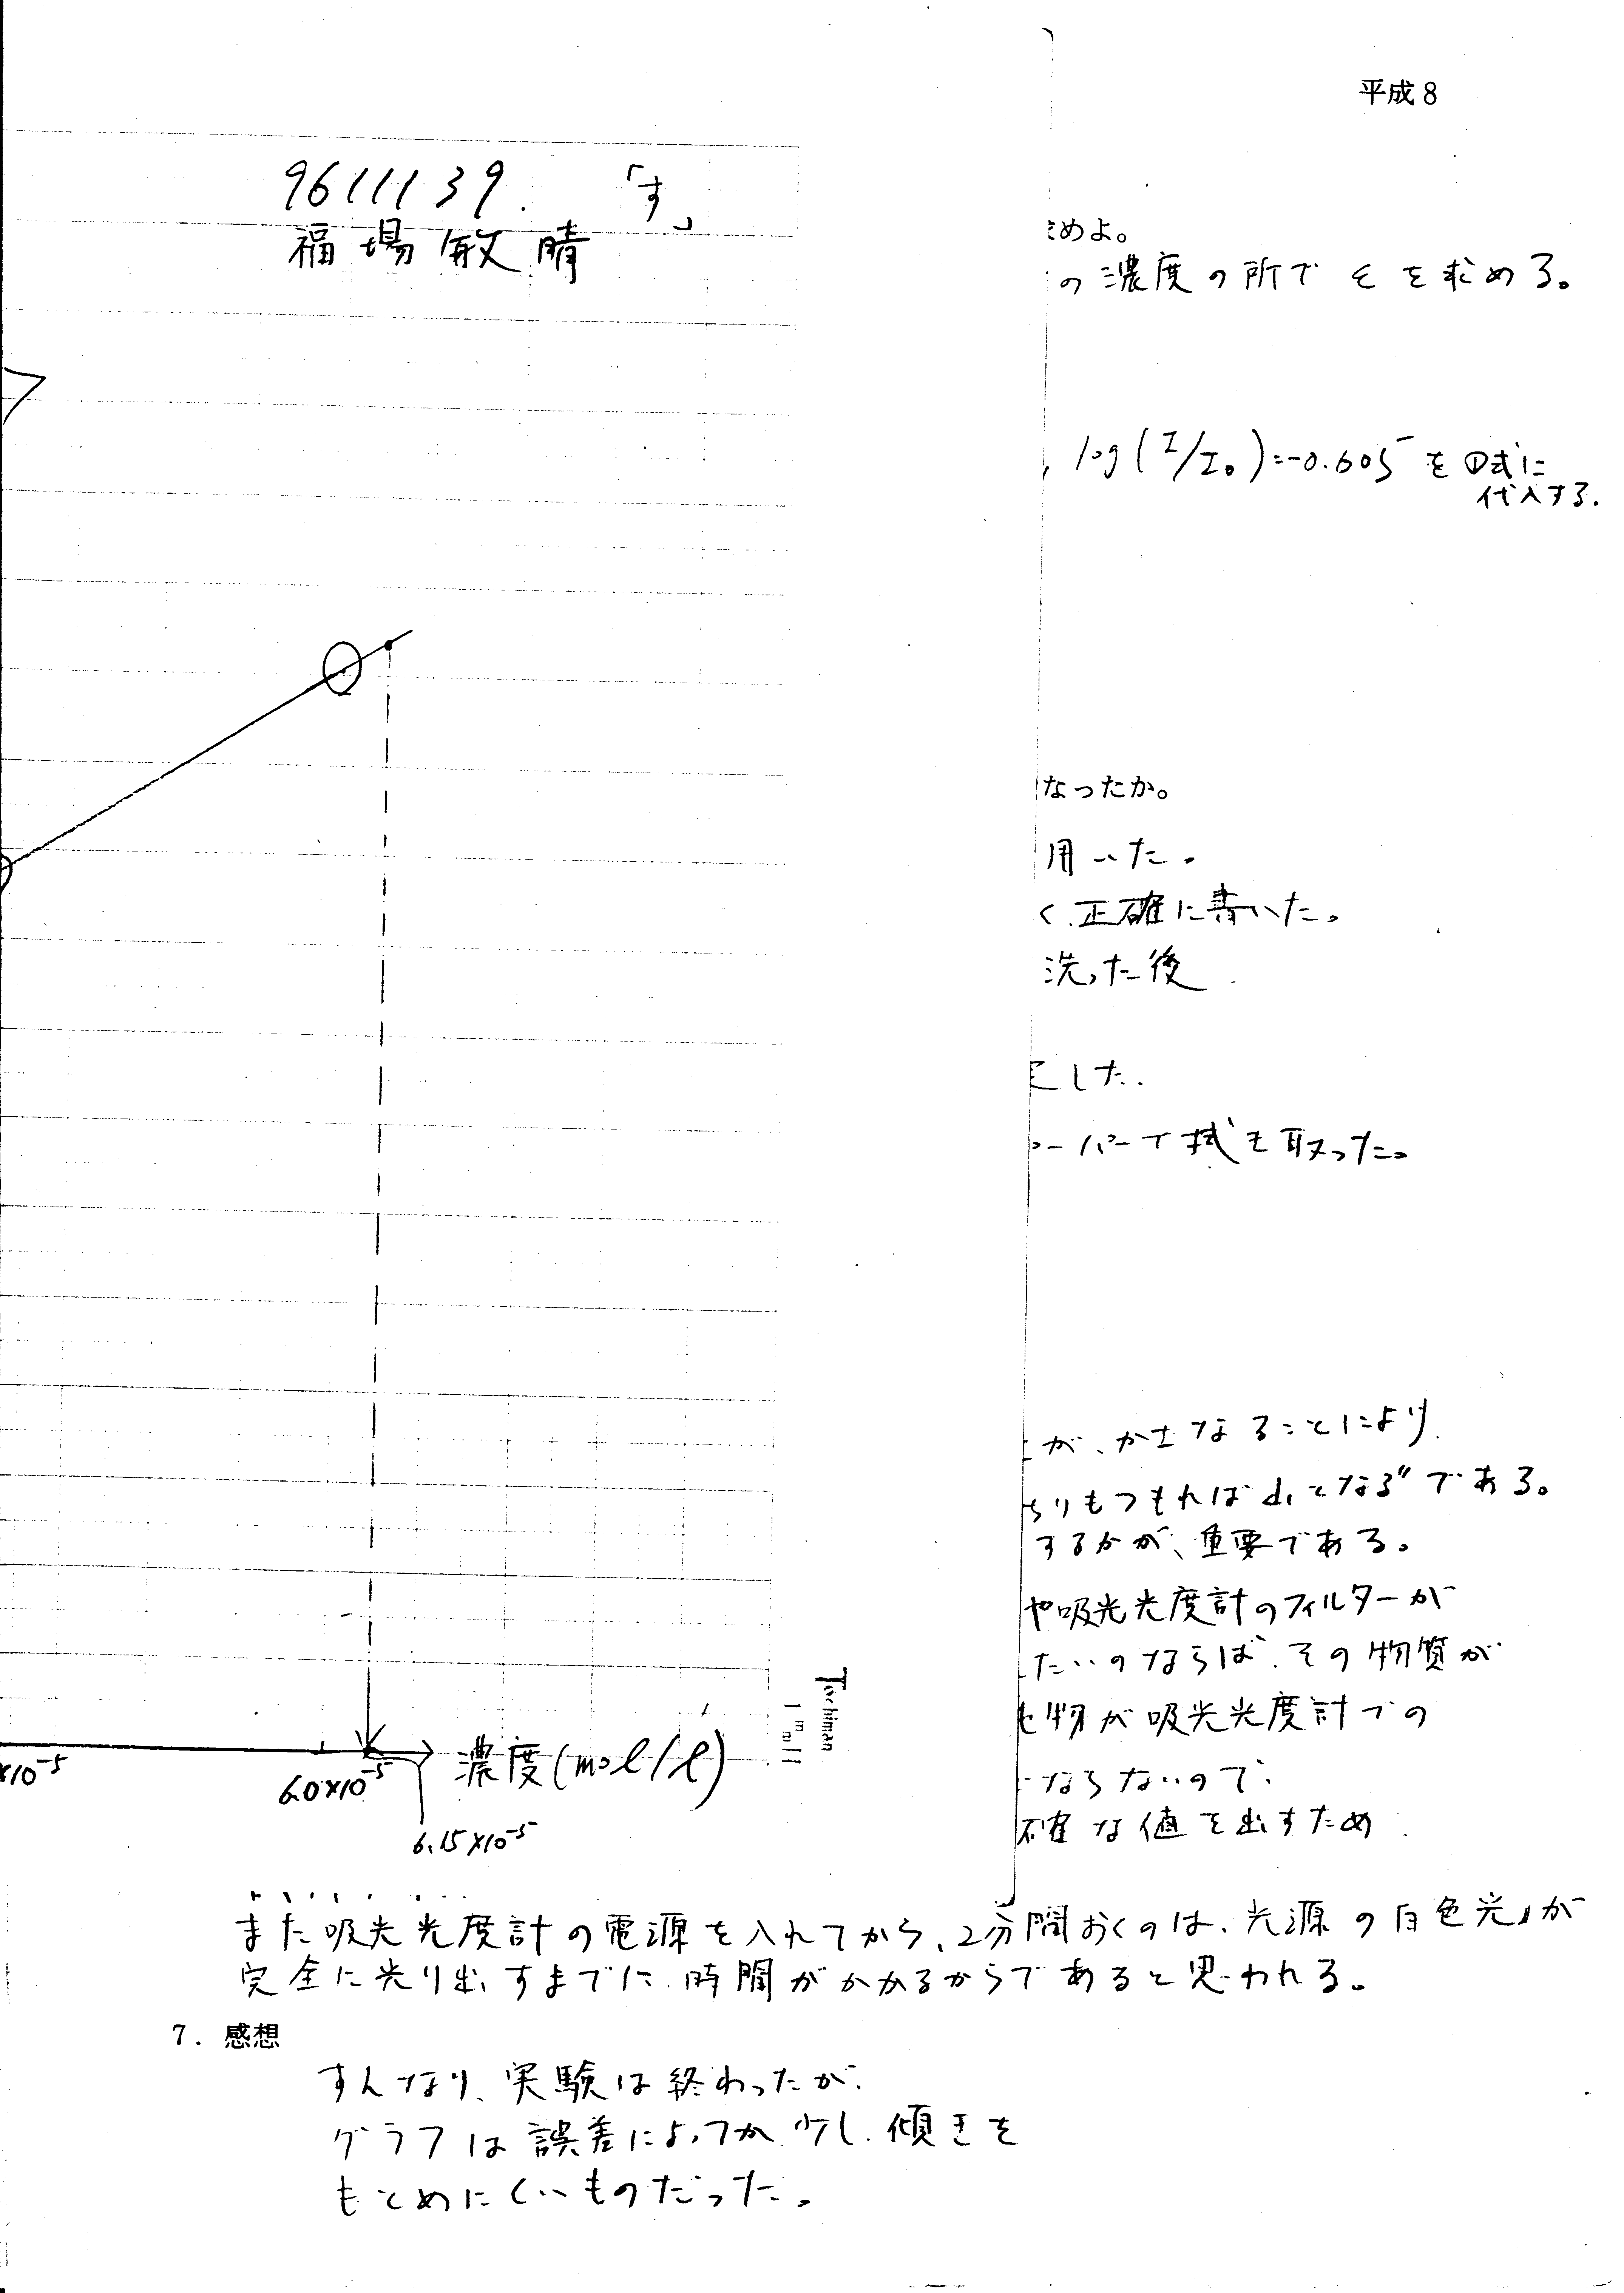 平成8
9611139. 「す」
福場敏晴
めよ。
の濃度の所で ε を求める。
log(I/I₀)=-0.605 を①式に
代入する.
なったか。
用いた。
く、正確に書いた。
洗った後
した.
ーパーで拭き取った。
が、かさなることにより
りもつもれば となる”である。
するかが、重要である。
や吸光光度計のフィルターが
たいのならば、その物質が
物が吸光光度計での
ならないので、
確な値を出すため
×10⁻⁵
6.0×10⁻⁵
濃度(mol/l)
6.15×10⁻⁵
また吸光光度計の電源を入れてから、2分間おくのは、光源の白色光が
完全に光り出すまでに、時間がかかるからであると思われる。
7. 感想
すんなり、実験は終わったが、
グラフは誤差によってか少し、傾きを
もとめにくいものだった。